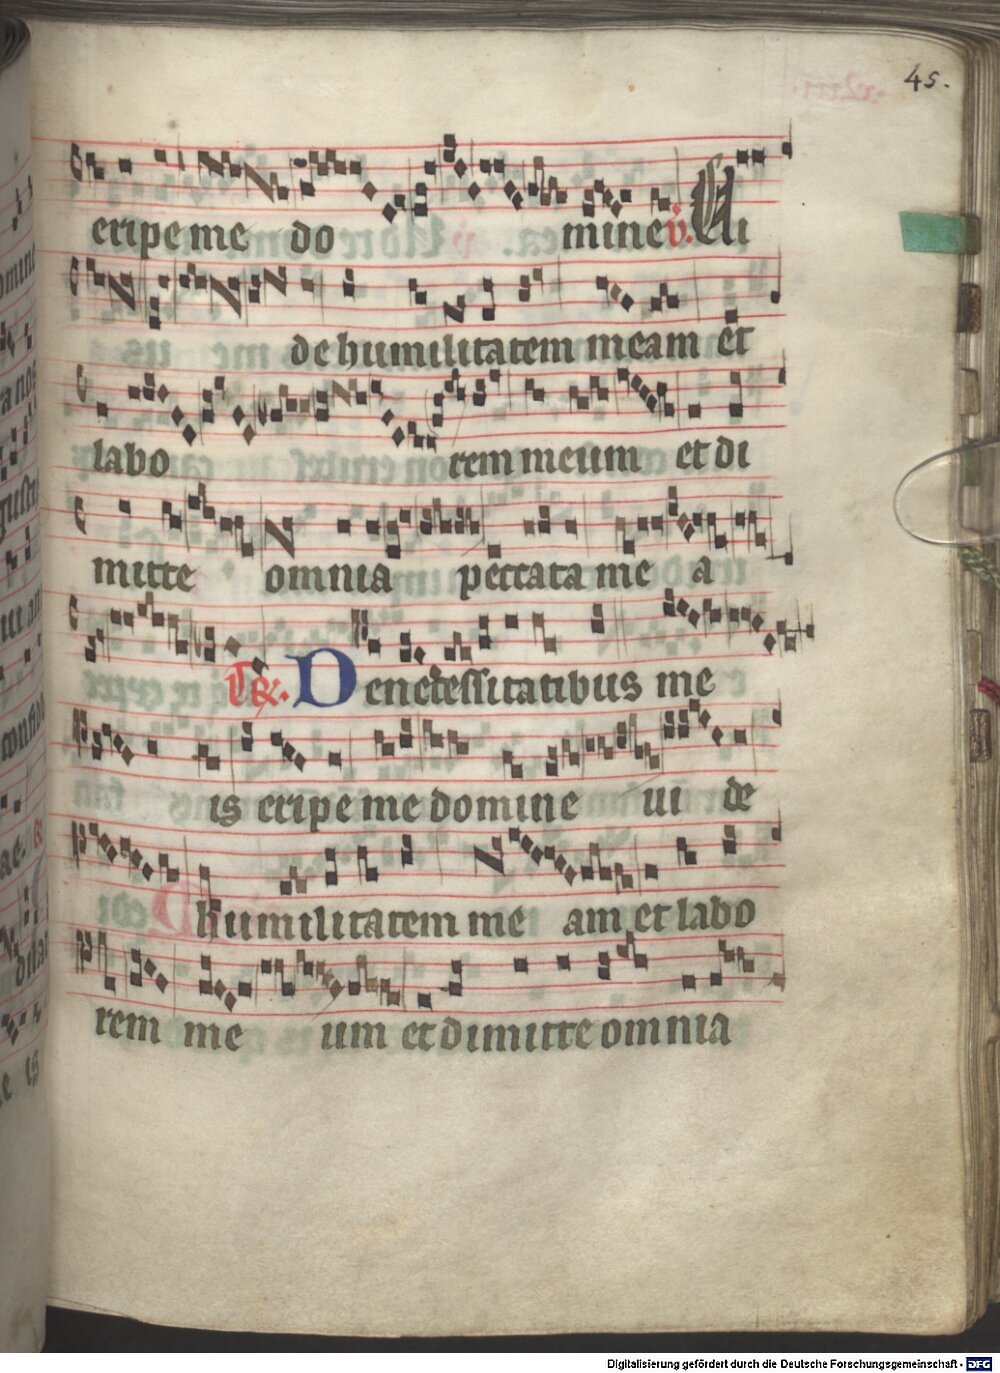 45.
eripe me do mine v. Ui
de humilitatem meam et
labo rem meum et di
mitte omnia peccata me a
Tr. De necessitatibus me
is eripe me domine ui de
humilitatem me am et labo
rem me um et dimitte omnia
Digitalisierung gefördert durch die Deutsche Forschungsgemeinschaft - DFG